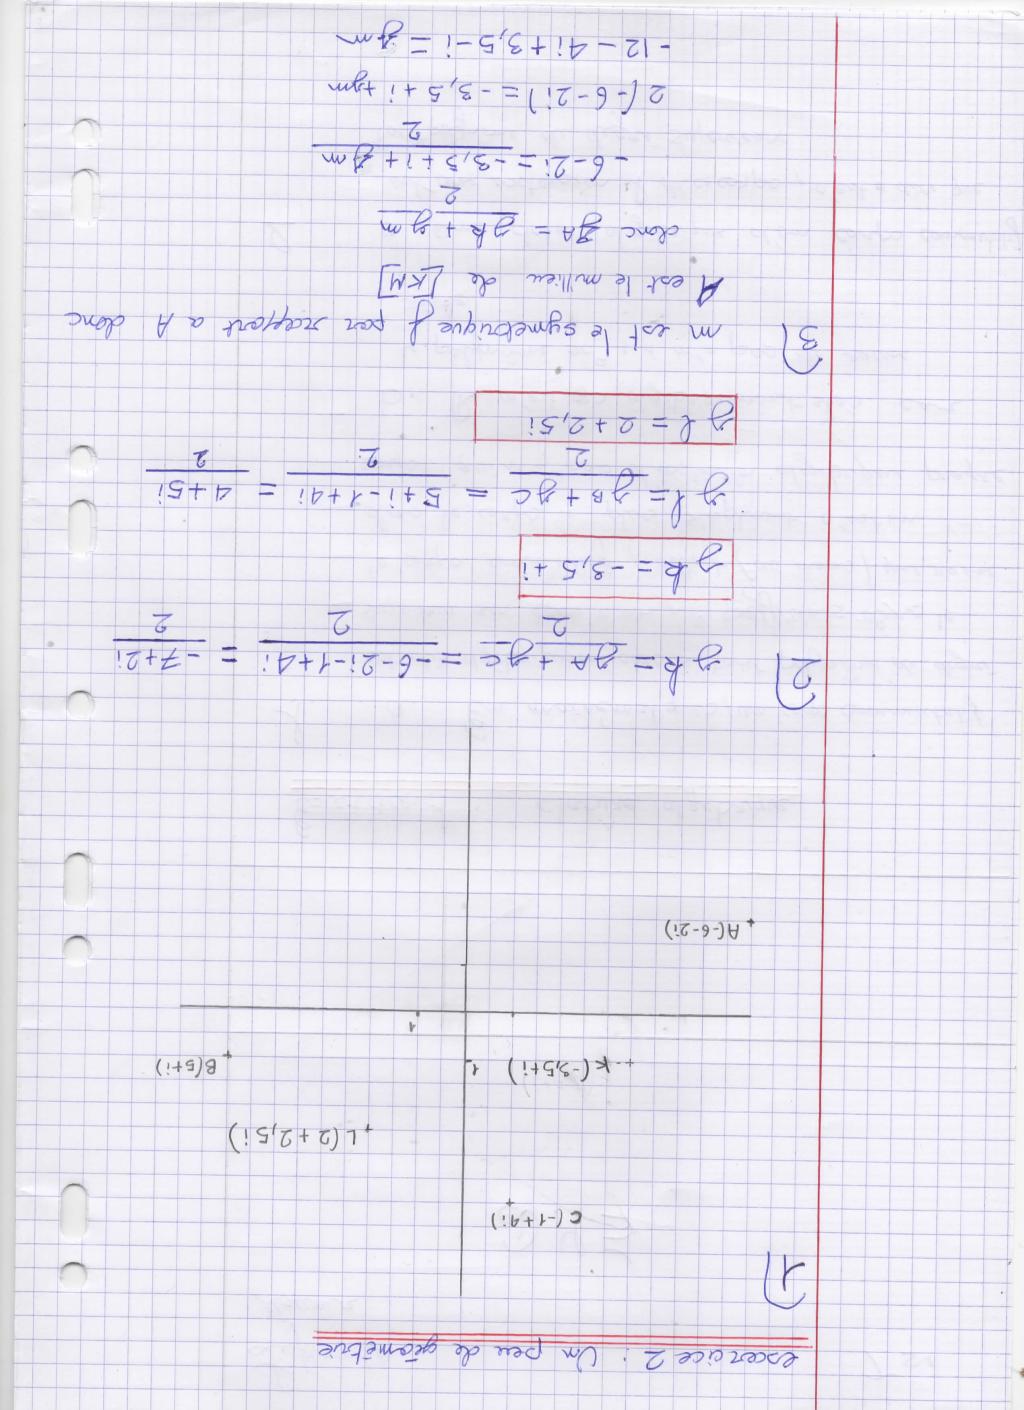 exercice 2 : Un peu de géométrie
1)
C(-1+4i)
L(2+2,5i)
K(-3,5+i)
1
B(5+i)
1
A(-6-2i)
2) zk = zA + zC / 2 = -6-2i-1+4i / 2 = -7+2i / 2
zk = -3,5+i
zl = zB + zC / 2 = 5+i-1+4i / 2 = 4+5i / 2
zl = 2+2,5i
3) m est le symétrique f par rapport a A donc
A est le millieu de [KM]
donc zA = zk + zm / 2
-6-2i = -3,5+i+zm / 2
2(-6-2i) = -3,5+i+zm
-12-4i+3,5-i = zm